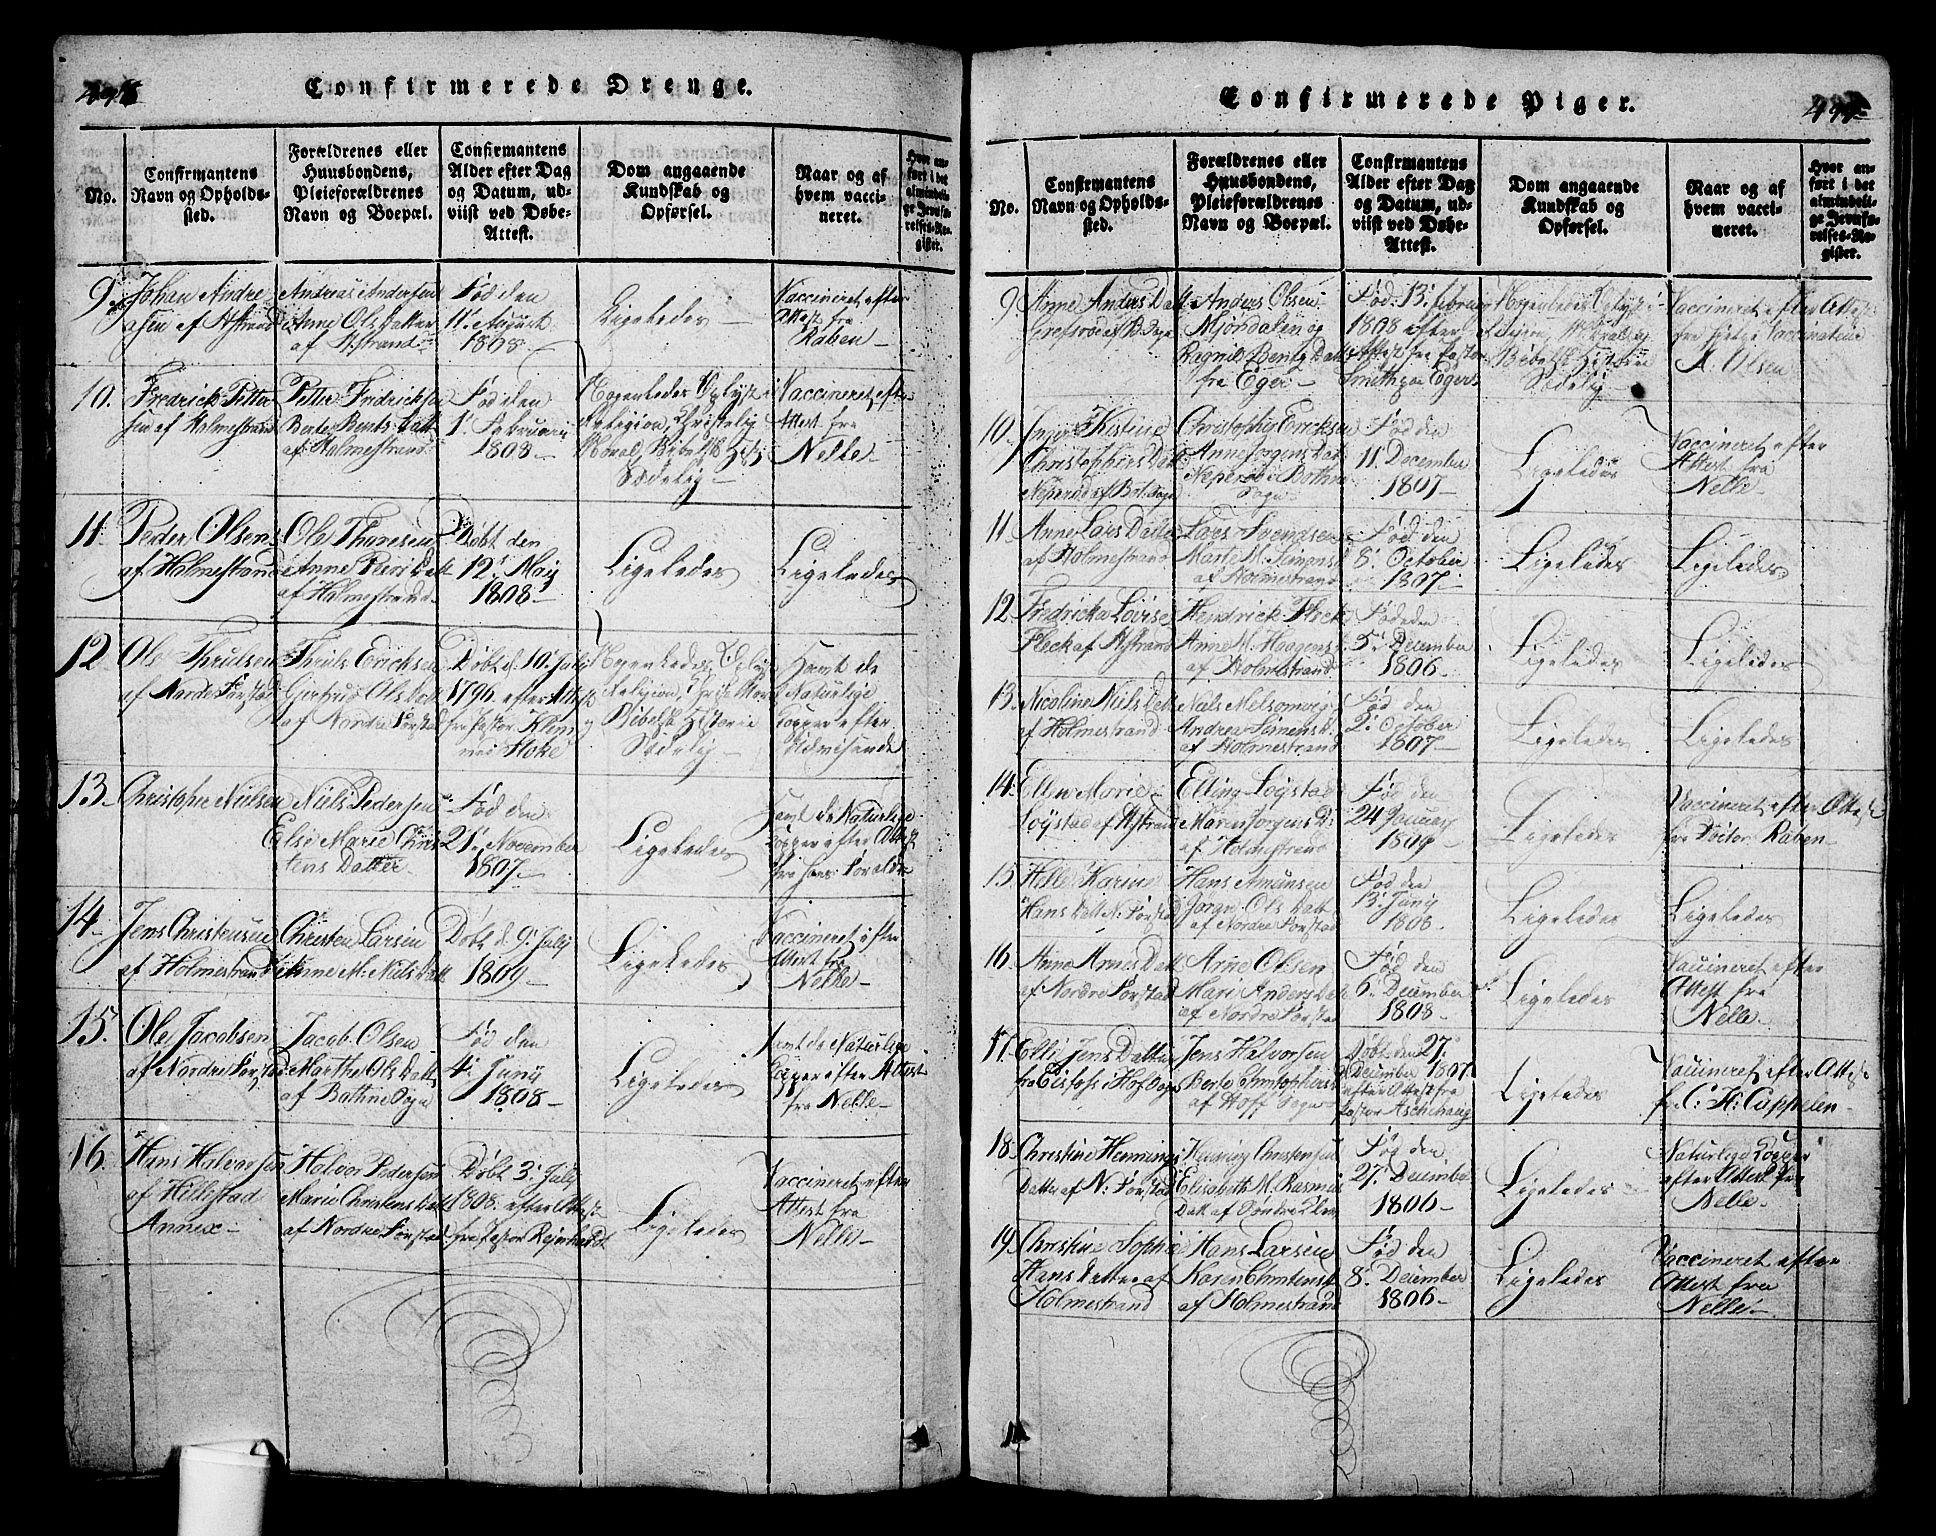 Confirmerede Drenge.
No.
Confirmantens
Navn og Opholds-
sted.
Forældrenes eller
Huusbondens,
Pleieforældrenes
Navn og Boepæl.
Confirmantens
Alder efter Dag
og Datum, ud-
viist ved Døbe-
Attest.
Dom angaaende
Kundskab og
Opførsel.
Naar og af
hvem vacci-
neret.
Hvor an-
ført i det
almindeli-
ge Jevnfø-
relses-Re-
gister.
9.
Johan Andre
asen af Astrand
Andreas Andersen
Anne Ols Datter
af Astrand
Fød den
11' August
1808
Ligeledes
Vaccineret efter
Attest fra
Raben
10.
Fredrick Petter
sen af Holmestrand
Petter Fredricksen
Berte Bents Datt
af Holmestrand
Fød den
1' Februarii
1808
Nogenledes Oplyst i
Religion, Christelig
Moral, Bibelsk Hist:
Sædelig
Vaccineret efter
Attest fra
Nelle
11.
Peder Olsen
af Holmestrand
Ole Thoresen
Anne Peers Datt
af Holmestrand
Døbt den
12' Maij
1808
Ligeledes
Ligeledes
12
Ole Thrulsen
af Nordre Forstad
Thruls Ericksen
Gjertrud Ols Datt
af Nordre Forstad
Døbt d: 10' Julij
1796 efter Attest
fra Pastor Klem
med
Nogenledes Oplyst
Religion,
Bibelsk Historie
Sædelig
Havt de
Naturlige
Kopper efter
Udvisende
13
Christopher Nielsen
Niels Pedersen
Else Marie Chris
tens Datter
Fød den
21' November
1807
Ligeledes
Havt de Naturlige
Kopper efter Attest
fra hans Forældre
14
Jens Christensen
af Holmestrand
Christen Larsen
Anne M. Niels Datt
Døbt d. 9' Julij
1809
Ligeledes
Vaccineret efter
Attest fra
Nelle
15.
Ole Jacobsen
af Nordre Forstad
Jacob Olsen
Marthe Ols Datt
af Bothne Sogn
Fød den
4' Junii
1808
Ligeledes
Havt de Naturlige
Kopper efter Attest
fra Nelle
16
Hans Halvorsen
af Hillestad
Annex
Halvor Pedersen
Marie Christens Datt
af Nordre Forstad
Døbt 3' Julij
1808 efter Attest
fra Pastor Rejnhardt
Ligeledes
Vaccineret efter
Attest fra
Nelle
Confirmerede Piger.
No.
Confirmantens
Navn og Opholds-
sted.
Forældrenes eller
Huusbondens,
Pleieforældrenes
Navn og Boepæl.
Confirmantens
Alder efter Dag
og Datum, ud-
viist ved Døbe-
Attest.
Dom angaaende
Kundskab og
Opførsel.
Naar og af
hvem vacci-
neret.
Hvor an-
ført i det
almindeli-
ge Jevnfø-
relses-Re-
gister.
9
Anne Anders Datt
Anders Olsen
Mjøndalen og
Ragnild Bents Datt
fra Eger
Fød 13' Februar
1808 efter
Attest fra Pastor
Smith paa Eger
Nogenledes Oplyst i
Religion, Moral og
Bibelsk Historie
Sædelig
Vaccineret efter Attest
fra Vaccinateur
A. Olsen
10
Inger Kistine
Christophers Datt
Christopher Ericksen
Anne Jorgens Datt
Neperød i Bothne
Sogn
Fød den
11' December
1807
Ligeledes
Vaccineret efter
Attest fra
Nelle
11
Anne Lars Datte
af Holmestrand
Lars Svendsen
Marte M. Simens D
af Holmestrand
Fød den
8' October
1807
Ligeledes
Ligeledes
12
Fredricka Lovise
Fleck af Astrand
Hendrick Fleck
Anne M. Haagens
af Holmestrand
Fød den
5' December
1806
Ligeledes
Ligeledes
13
Nicoline Niels Datt
af Holmestrand
Niels Melsomvig
Andrea Simens
af Holmestrand
Fød den
2' October
1807
Ligeledes
Ligeledes
14
Ellen Marie
Løystad af Astrand
Elling Løystad
Maren Jorgens D
af Holmestrand
Fød den
24 Januarij
1809
Ligeledes
Vaccineret efter Attest
fra Doctor Raben
15
Helle Karine
Hans Datt N. Forstad
Hans Amunsen
Jorgn. Ols Datt
af Nordre Forstad
Fød den
13' Junij
1808
Ligeledes
Ligeledes
16
Anne Arnes Datt
af Nordre Forstad
Arne Olsen
Mari Anders Datt
af Nordre Forstad
Fød den
6' December
1808
Ligeledes
Vaccineret efter
Attest fra
Nelle
17
Elli Jens Datter
Jens Halvorsen
Berte Christophers
af Hoff Sogn
Døbt den 27'
December 1807
efter Attest fra
Pastor Aschehaug
Ligeledes
Vaccineret efter Attest
fr C: H: Cappelen
18
Christine Hennings
Datte af N: Forstad
Henning Christensen
Elisabeth M. Rasmus
Datt af
Fød den
27' December
1806
Ligeledes
Naturlige Kopper
efter Attest fra
Nelle
19
Christine Sophie
Hans Datter af
Holmestrand
Hans Larsen
Karen Christens D
af Holmestrand
Fød den
8' December
1806
Ligeledes
Vaccineret efter
Attest fra
Nelle